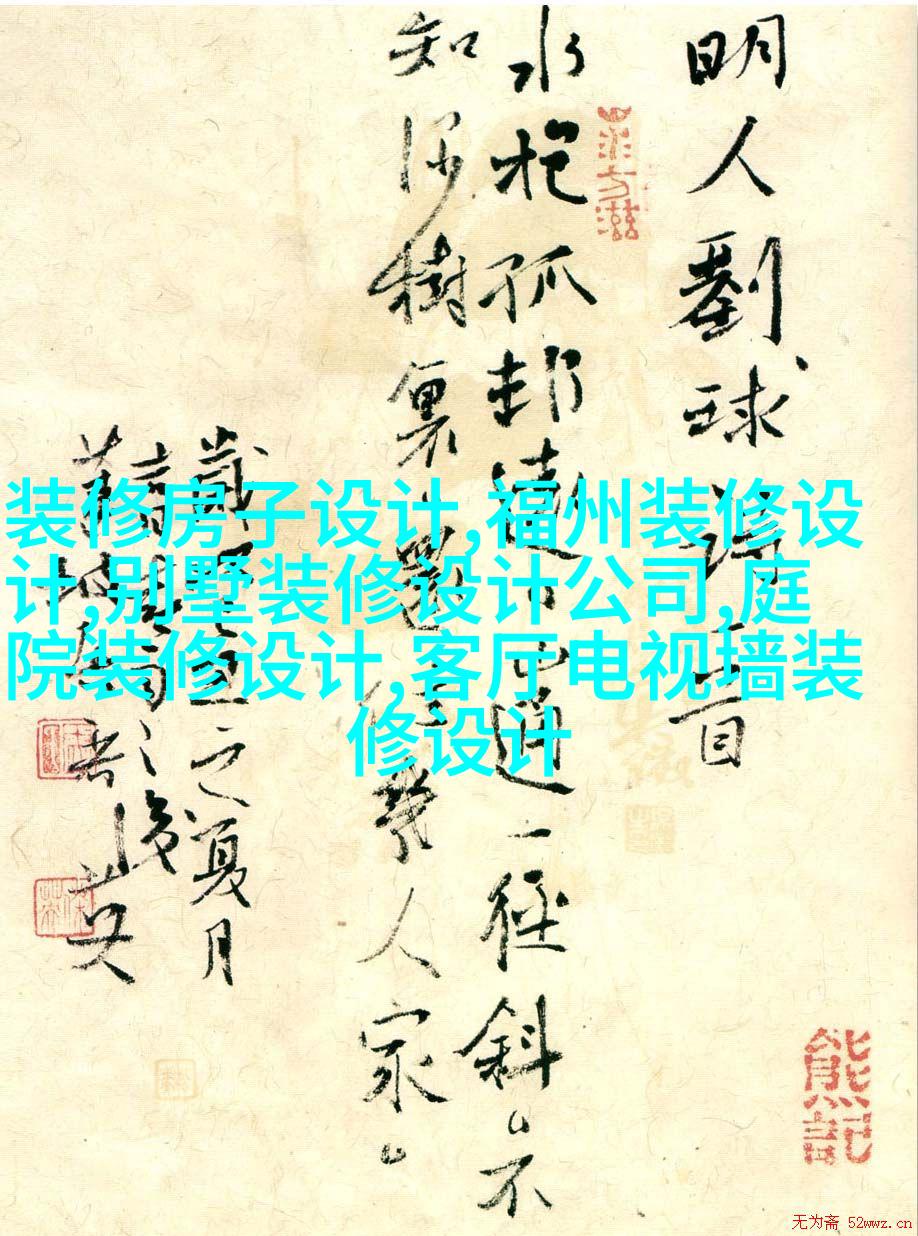 明人劉球詩一首
水抱孤邨遠山通一徑斜不
知深樹裏還住幾人家
之夏月
熊記
装修房子设计,福州装修设
计,别墅装修设计公司,庭
院装修设计,客厅电视墙装
修设计
无为斋 52wwz.cn